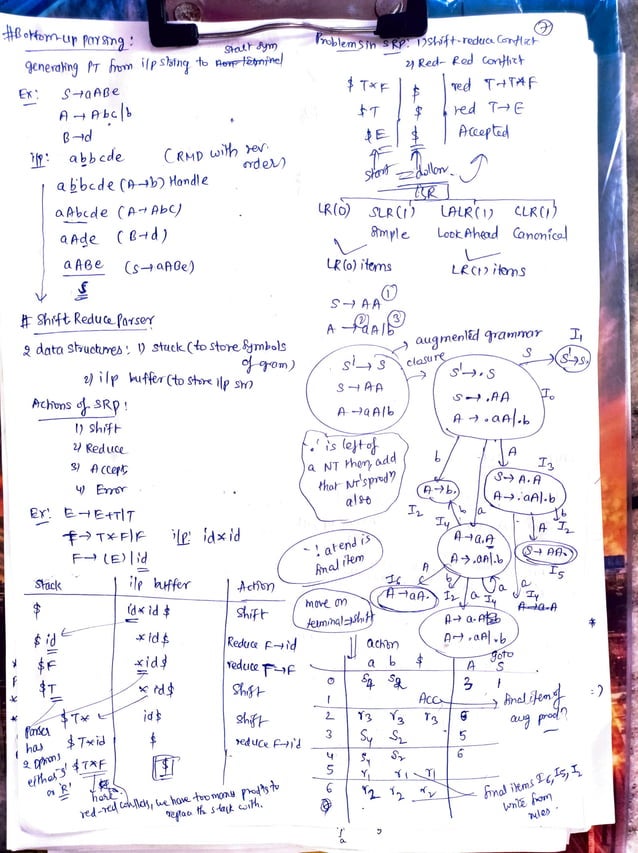 #Bottom-up parsing:
start sym
generating PT from i/p string to
Ex: S→aABe
A→Abc|b
B→d
i/p: abbcde (RMD with rev. order)
abbcde (A→b) Handle
aAbcde (A→Abc)
aAde (B→d)
aABe (S→aABe)
S
# Shift Reduce Parser
2 data structures: 1) stack (to store symbols of gram)
2) i/p buffer (to store i/p str)
Actions of SRP:
1) Shift
2) Reduce
3) Accept
4) Error
Ex: E→E+T|T
T→T*F|F i/p: id*id
F→(E)|id
Stack i/p buffer Action
$ id*id$ Shift
$id *id$ Reduce F→id
$F *id$ reduce T→F
$T *id$ Shift
$T* id$ Shift
$T*id $ reduce F→id
$T*F $
Parser has 2 options either 'S' or 'R'
here
red-red conflicts, we have too many prod'ns to replace the stack with.
7
Problems in SRP: 1) Shift-reduce Conflict
2) Red-Red Conflict
$T*F $ red T→T*F
$T $ red T→E
$E $ Accepted
start dollar
LR
LR(0) SLR(1) LALR(1) CLR(1)
Simple LookAhead Canonical
LR(0) items LR(1) items
S→AA ①
A→aA|b ② ③
augmented grammar
closure
S'→S
S→AA
A→aA|b
S'→.S
S→.AA
A→.aA|.b
I0
S
S'→S.
I1
'.' is left of
a NT then, add
that NT's prod'n
also
b
a
A
I3
S→A.A
A→.aA|.b
A→b.
I2
A→a.A
A→.aA|.b
I4
A
b
I2
S→AA.
I5
'.' at end is
final item
I6
A→aA.
I2
a
I4
A→a.A
A→a.A
A→.aA|.b
move on
terminal⇒shift
action goto
a b $ A S
0 S4 S2 3 1
1 Acc
2 r3 r3 r3
3 S4 S2 5
4 S4 S2 6
5 r1 r1 r1
6 r2 r2 r2
final item of
aug prod'n
final items I6, I5, I2
write from
rules.